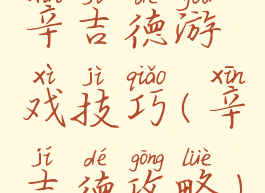 辛吉德游
xì jì qiǎo xīn
戏技巧(辛
jí dé gōng lüè
吉德攻略)